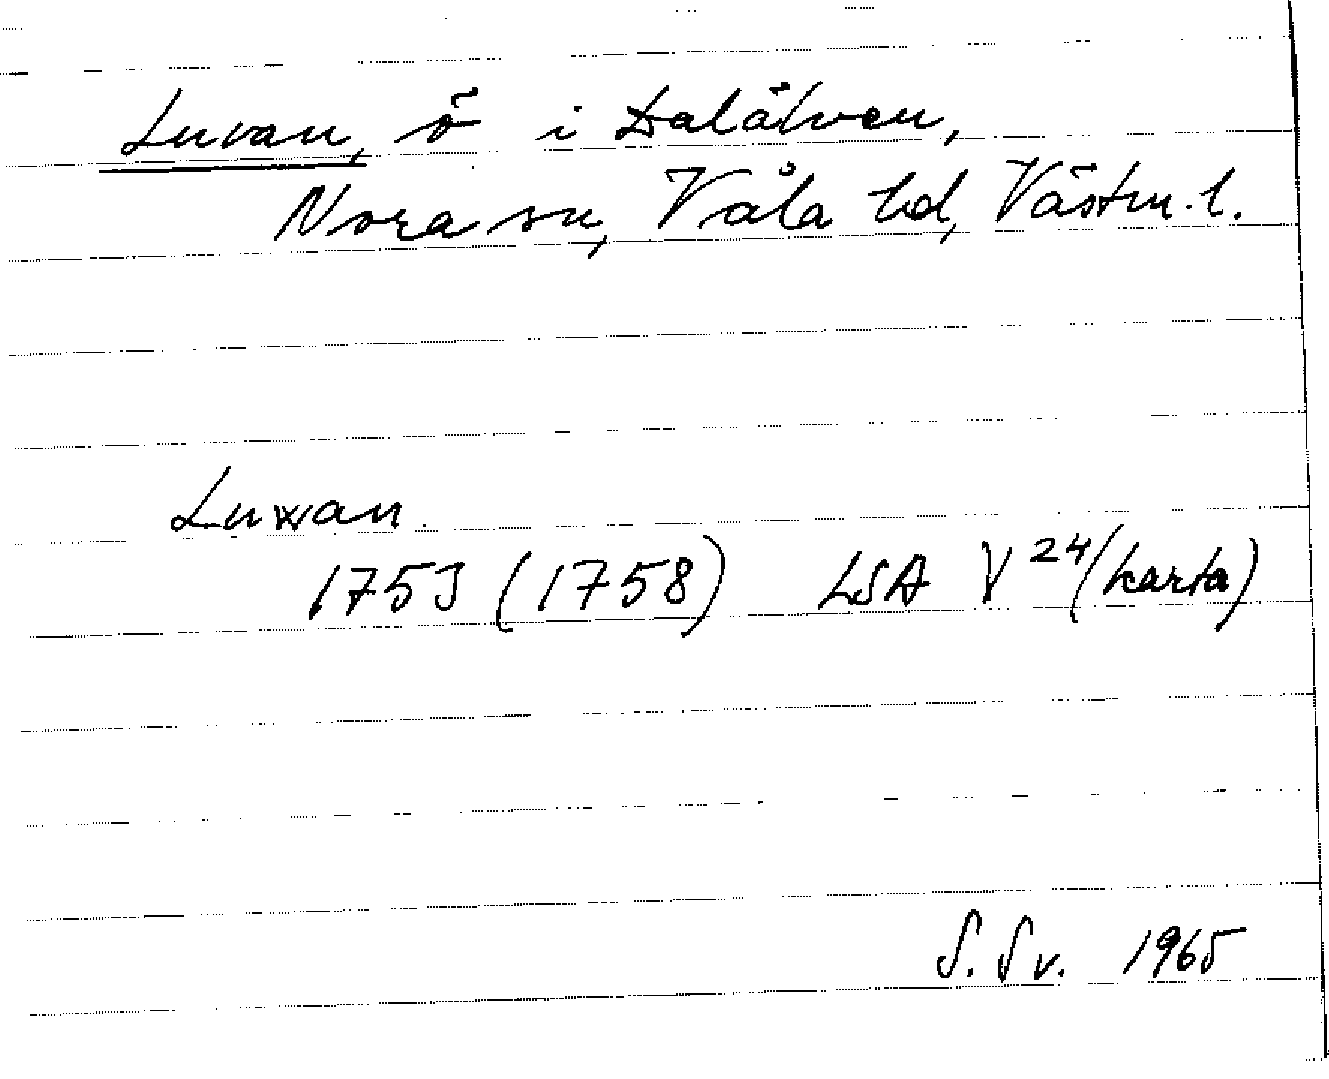 Luvan, ö i Dalälven,
Nora sn, Våla hd, Västm. l.
Luwan.
1753 (1758) LSA V 24 (karta)
S. Sv. 1965